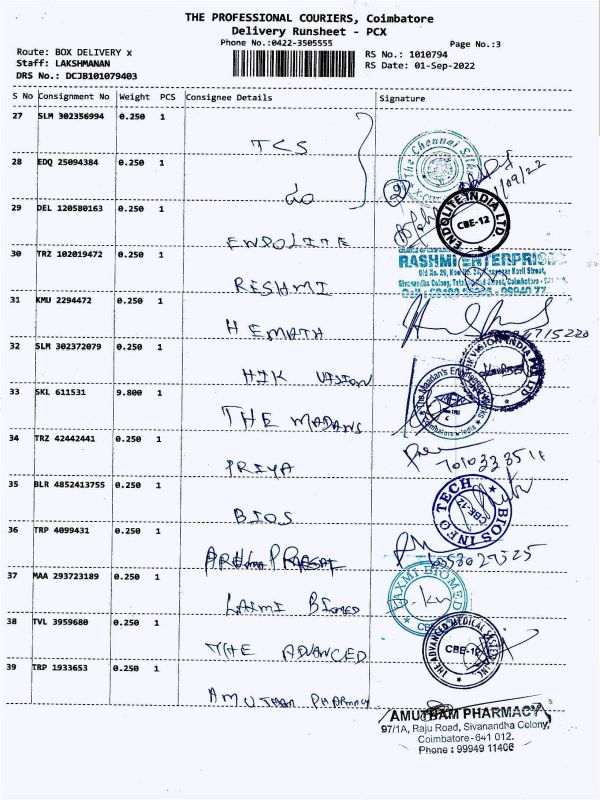 THE PROFESSIONAL COURIERS, Coimbatore
Delivery Runsheet - PCX
Phone No.:0422-3505555
Page No.:3
Route: BOX DELIVERY x
RS No.: 1010794
Staff: LAKSHMANAN
RS Date: 01-Sep-2022
DRS No.: DCJB101079403
S No Consignment No Weight PCS Consignee Details Signature
27 SLM 302356994 0.250 1
TCS
The Chennai Silks
28 EDQ 25094384 0.250 1
do
1/09/22
29 DEL 120580163 0.250 1
ENDOLITE
ENDOLITE INDIA LTD
CBE-12
30 TRZ 102019472 0.250 1
RESHMI
RASHMI ENTERPRISES
31 KMU 2294472 0.250 1
HEMATH
32 SLM 302372079 0.250 1
HIK VISION
33 SKL 611531 9.800 1
THE MADANS
34 TRZ 42442441 0.250 1
PRIYA
35 BLR 4852413755 0.250 1
BIOS
BIOS INFO TECH
CBE-12
36 TRP 4099431 0.250 1
37 MAA 293723189 0.250 1
LAXMI BIOMED
LAXMI BIOMED
38 TVL 3959680 0.250 1
THE ADVANCED
THE ADVANCED MEDICAL
39 TRP 1933653 0.250 1
AMUTHAM PHARMACY
AMUTHAM PHARMACY
97/1A, Raju Road, Sivanandha Colony,
Coimbatore-641 012.
Phone : 99949 11406